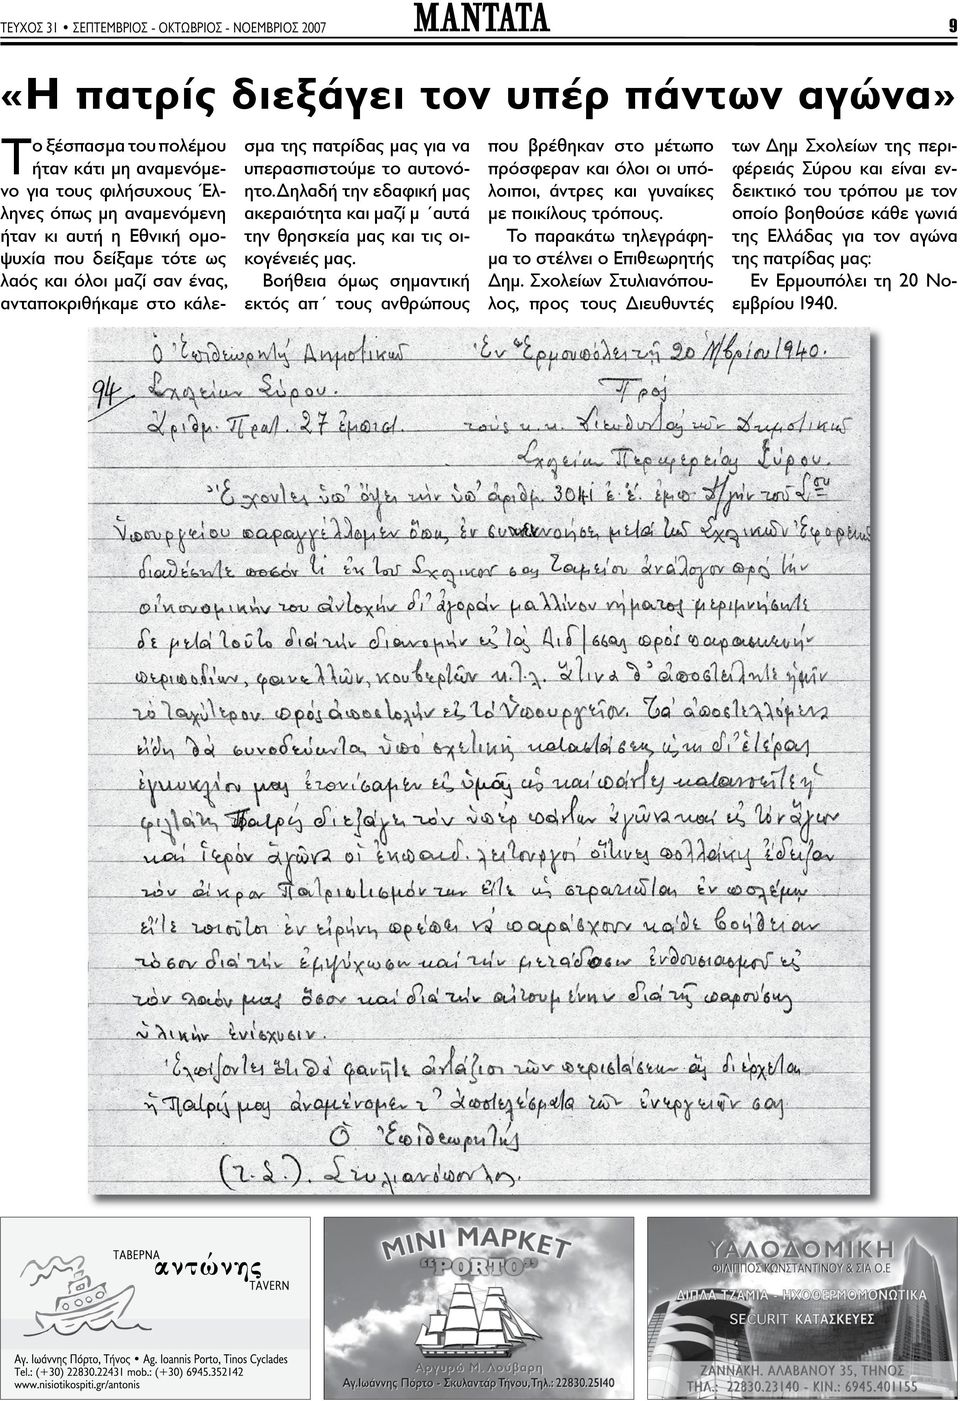 ΤΕΥΧΟΣ 31 • ΣΕΠΤΕΜΒΡΙΟΣ - ΟΚΤΩΒΡΙΟΣ - ΝΟΕΜΒΡΙΟΣ 2007
ΜΑΝΤΑΤΑ
9
«Η πατρίς διεξάγει τον υπέρ πάντων αγώνα»
Το ξέσπασμα του πολέμου
ήταν κάτι μη αναμενόμε-
νο για τους φιλήσυχους Έλ-
ληνες όπως μη αναμενόμενη
ήταν κι αυτή η Εθνική ομο-
ψυχία που δείξαμε τότε ως
λαός και όλοι μαζί σαν ένας,
ανταποκριθήκαμε στο κάλε-
σμα της πατρίδας μας για να
υπερασπιστούμε το αυτονό-
ητο.Δηλαδή την εδαφική μας
ακεραιότητα και μαζί μ΄αυτά
την θρησκεία μας και τις οι-
κογένειές μας.
Βοήθεια όμως σημαντική
εκτός απ΄ τους ανθρώπους
που βρέθηκαν στο μέτωπο
πρόσφεραν και όλοι οι υπό-
λοιποι, άντρες και γυναίκες
με ποικίλους τρόπους.
Το παρακάτω τηλεγράφη-
μα το στέλνει ο Επιθεωρητής
Δημ. Σχολείων Στυλιανόπου-
λος, προς τους Διευθυντές
των Δημ Σχολείων της περι-
φέρειάς Σύρου και είναι εν-
δεικτικό του τρόπου με τον
οποίο βοηθούσε κάθε γωνιά
της Ελλάδας για τον αγώνα
της πατρίδας μας:
Εν Ερμουπόλει τη 20 Νο-
εμβρίου 1940.
Ὁ Ἐπιθεωρητής Δημοτικῶν
Ἐν Ἑρμουπόλει τῇ 20 Νβρίου 1940.
94 Σχολείων Σύρου.
Πρός
Ἀριθμ. Πρωτ. 27 ἐμπιστ.
τούς κ.κ. Διευθυντάς τῶν Δημοτικῶν
Σχολείων Περιφερείας Σύρου.
Ἔχοντες ὑπ' ὄψει τήν ὑπ' ἀριθμ. 3041 ἐ.ἔ. ἐμπ. Δ/γήν τοῦ Σοῦ
Ὑπουργείου παραγγέλλομεν ὅπως ἐν συνεννοήσει μετά τῶν Σχολικῶν Ἐφορειῶν
διαθέσητε ποσόν τι ἐκ τοῦ Σχολικοῦ σας Ταμείου ἀνάλογον πρός τήν
οἰκονομικήν του ἀντοχήν δι' ἀγοράν μαλλίνου νήματος μεριμνήσητε
δε μετά τοῦτο διά τήν διανομήν εἰς τάς Διδ/σσας πρός παρασκευήν
περιποδίων, φανελλῶν, κουβερτῶν κ.τ.λ. ἅτινα θ' ἀποστείλητε ἡμῖν
τό ταχύτερον πρός ἀποστολήν εἰς τό Ὑπουργεῖον. Τά ἀποστελλόμενα
εἴδη θά συνοδεύωνται ὑπό σχετικῆς καταστάσεως ὡς κ δι' ἑτέρας
ἐγκυκλίου μας ἐτονίσαμεν εἰς ὑμᾶς ὡς καί πάντες κατανοεῖτε ἡ
φιλτάτη Πατρίς διεξάγει τόν ὑπέρ πάντων ἀγῶνα καί εἰς τόν ἅγιον
καί ἱερόν ἀγῶνα οἱ ἐκπαιδ. λειτουργοί οἵτινες πολλάκις ἔδειξαν
τόν ἀκραν Πατριωτισμόν των εἴτε ὡς στρατιῶται ἐν πολέμῳ
εἴτε τοιοῦτοι ἐν εἰρήνῃ πρέπει νά παράσχουν κάθε βοήθειαν
τόσον διά τήν ἐμψύχωσιν καί τήν μετάδοσιν ἐνθουσιασμοῦ εἰς
τόν λαόν μας ὅσον καί διά τήν αἰτουμένην διά τῆς παρούσης
ὑλικήν ἐνίσχυσιν.
Ἐλπίζοντες ὅτι θά φανῆτε ἀντάξιοι τῶν περιστάσεων ἅς διέρχεται
ἡ Πατρίς μας ἀναμένομεν τ' ἀποτελέσματα τῶν ἐνεργειῶν σας
Ὁ Ἐπιθεωρητής
(Τ.Σ.). Στυλιανόπουλος.
ΤΑΒΕΡΝΑ
αντώνης
TAVERN
Αγ. Ιωάννης Πόρτο, Τήνος • Ag. Ioannis Porto, Tinos Cyclades
Tel.: (+30) 22830.22431 mob.: (+30) 6945.352142
www.nisiotikospiti.gr/antonis
ΜΙΝΙ ΜΑΡΚΕΤ
“PORTO”
Αργυρώ Μ. Λούβαρη
Αγ.Ιωάννης Πόρτο - Σκυλαντάρ Τήνου, Τηλ.: 22830.25140
ΥΑΛΟΔΟΜΙΚΗ
ΦΙΛΙΠΠΟΣ ΚΩΝΣΤΑΝΤΙΝΟΥ & ΣΙΑ Ο.Ε
ΔΙΠΛΑ ΤΖΑΜΙΑ - ΗΧΟΘΕΡΜΟΜΟΝΩΤΙΚΑ
SECURIT ΚΑΤΑΣΚΕΥΕΣ
ΖΑΝΝΑΚΗ. ΑΛΑΒΑΝΟΥ 35, ΤΗΝΟΣ
ΤΗΛ.: 22830.23140 - ΚΙΝ.: 6945.401155